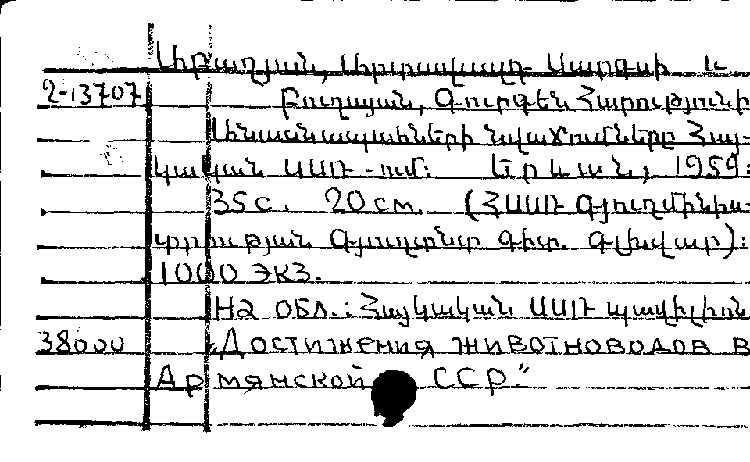 Սարգսի և
2-13707 Բուդաղյան, Գուրգեն Հարությունի
Անասնապահների նվաճումները Հայ-
կական ՍՍՌ-ում: Երևան, 1959:
35 с. 20 см. (ՀՍՍՌ Գյուղմինիս-
տրության Գյուղատնտ գիտ. գլխվար):
1000 экз.
На обл.: Հայկական ՍՍՌ պավիլիոն
38000 "Достижения животноводов в
Армянской ССР."